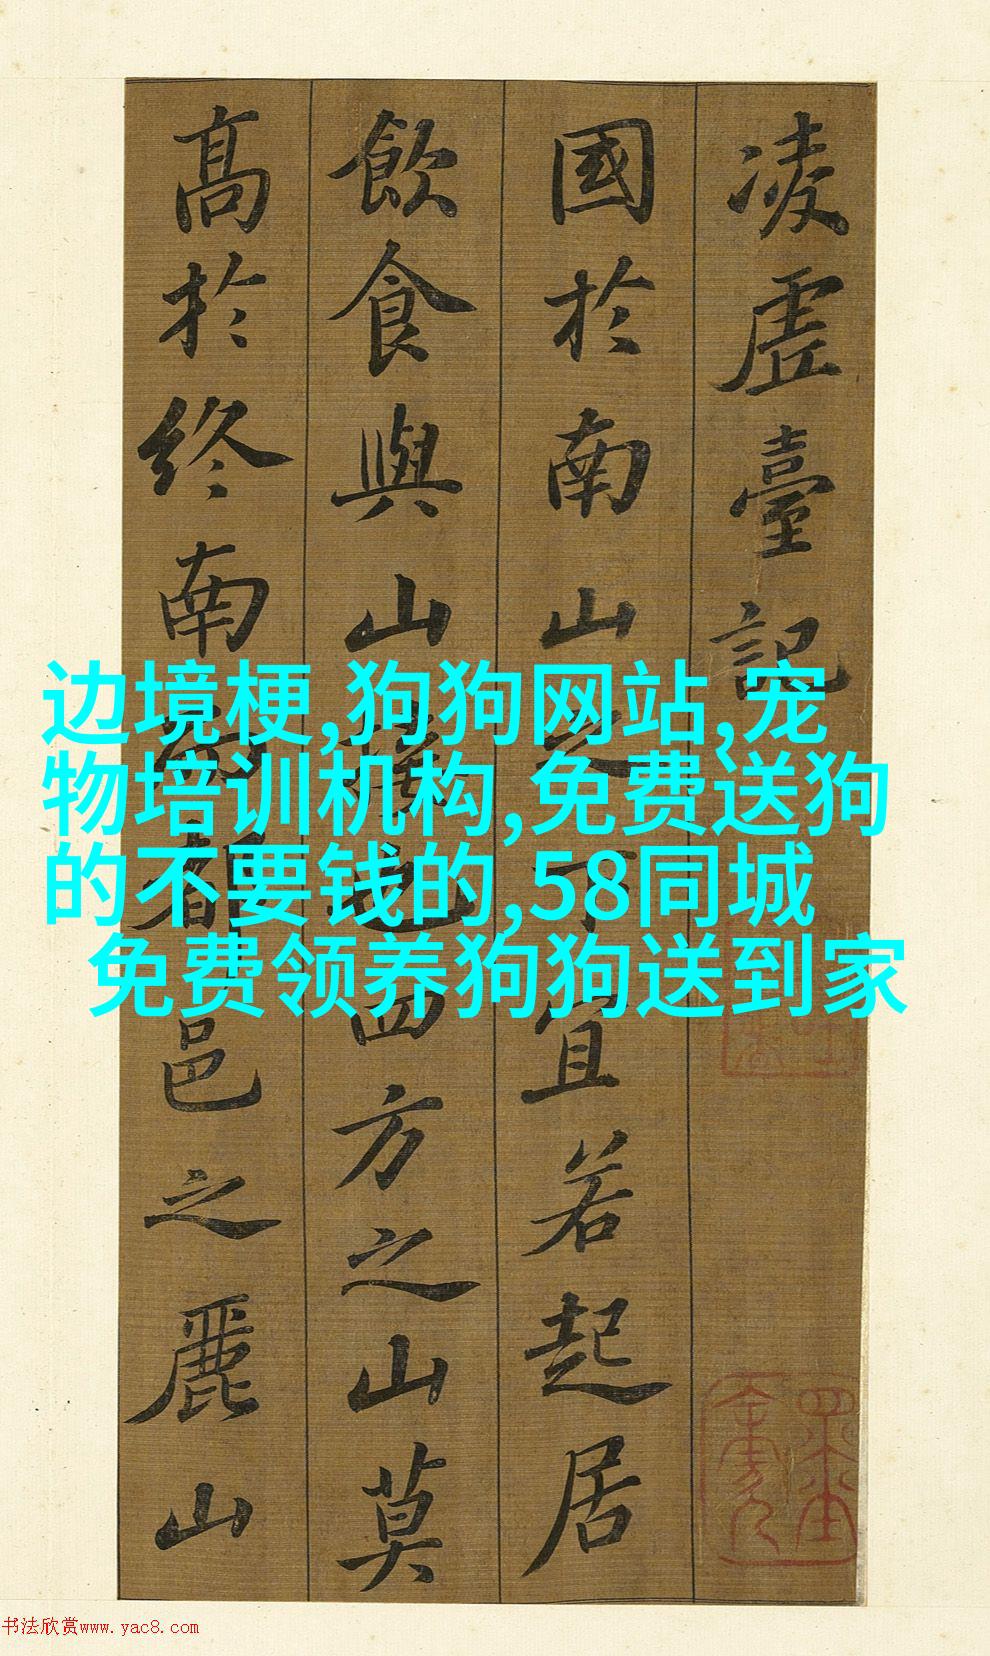 凌虛臺記
國於南山之下宜若起居
飲食與山接也四方之山莫
高於終南而都邑之麗山
边境梗,狗狗网站,宠
物培训机构,免费送狗
的不要钱的,58同城
免费领养狗狗送到家
书法欣赏www.yac8.com